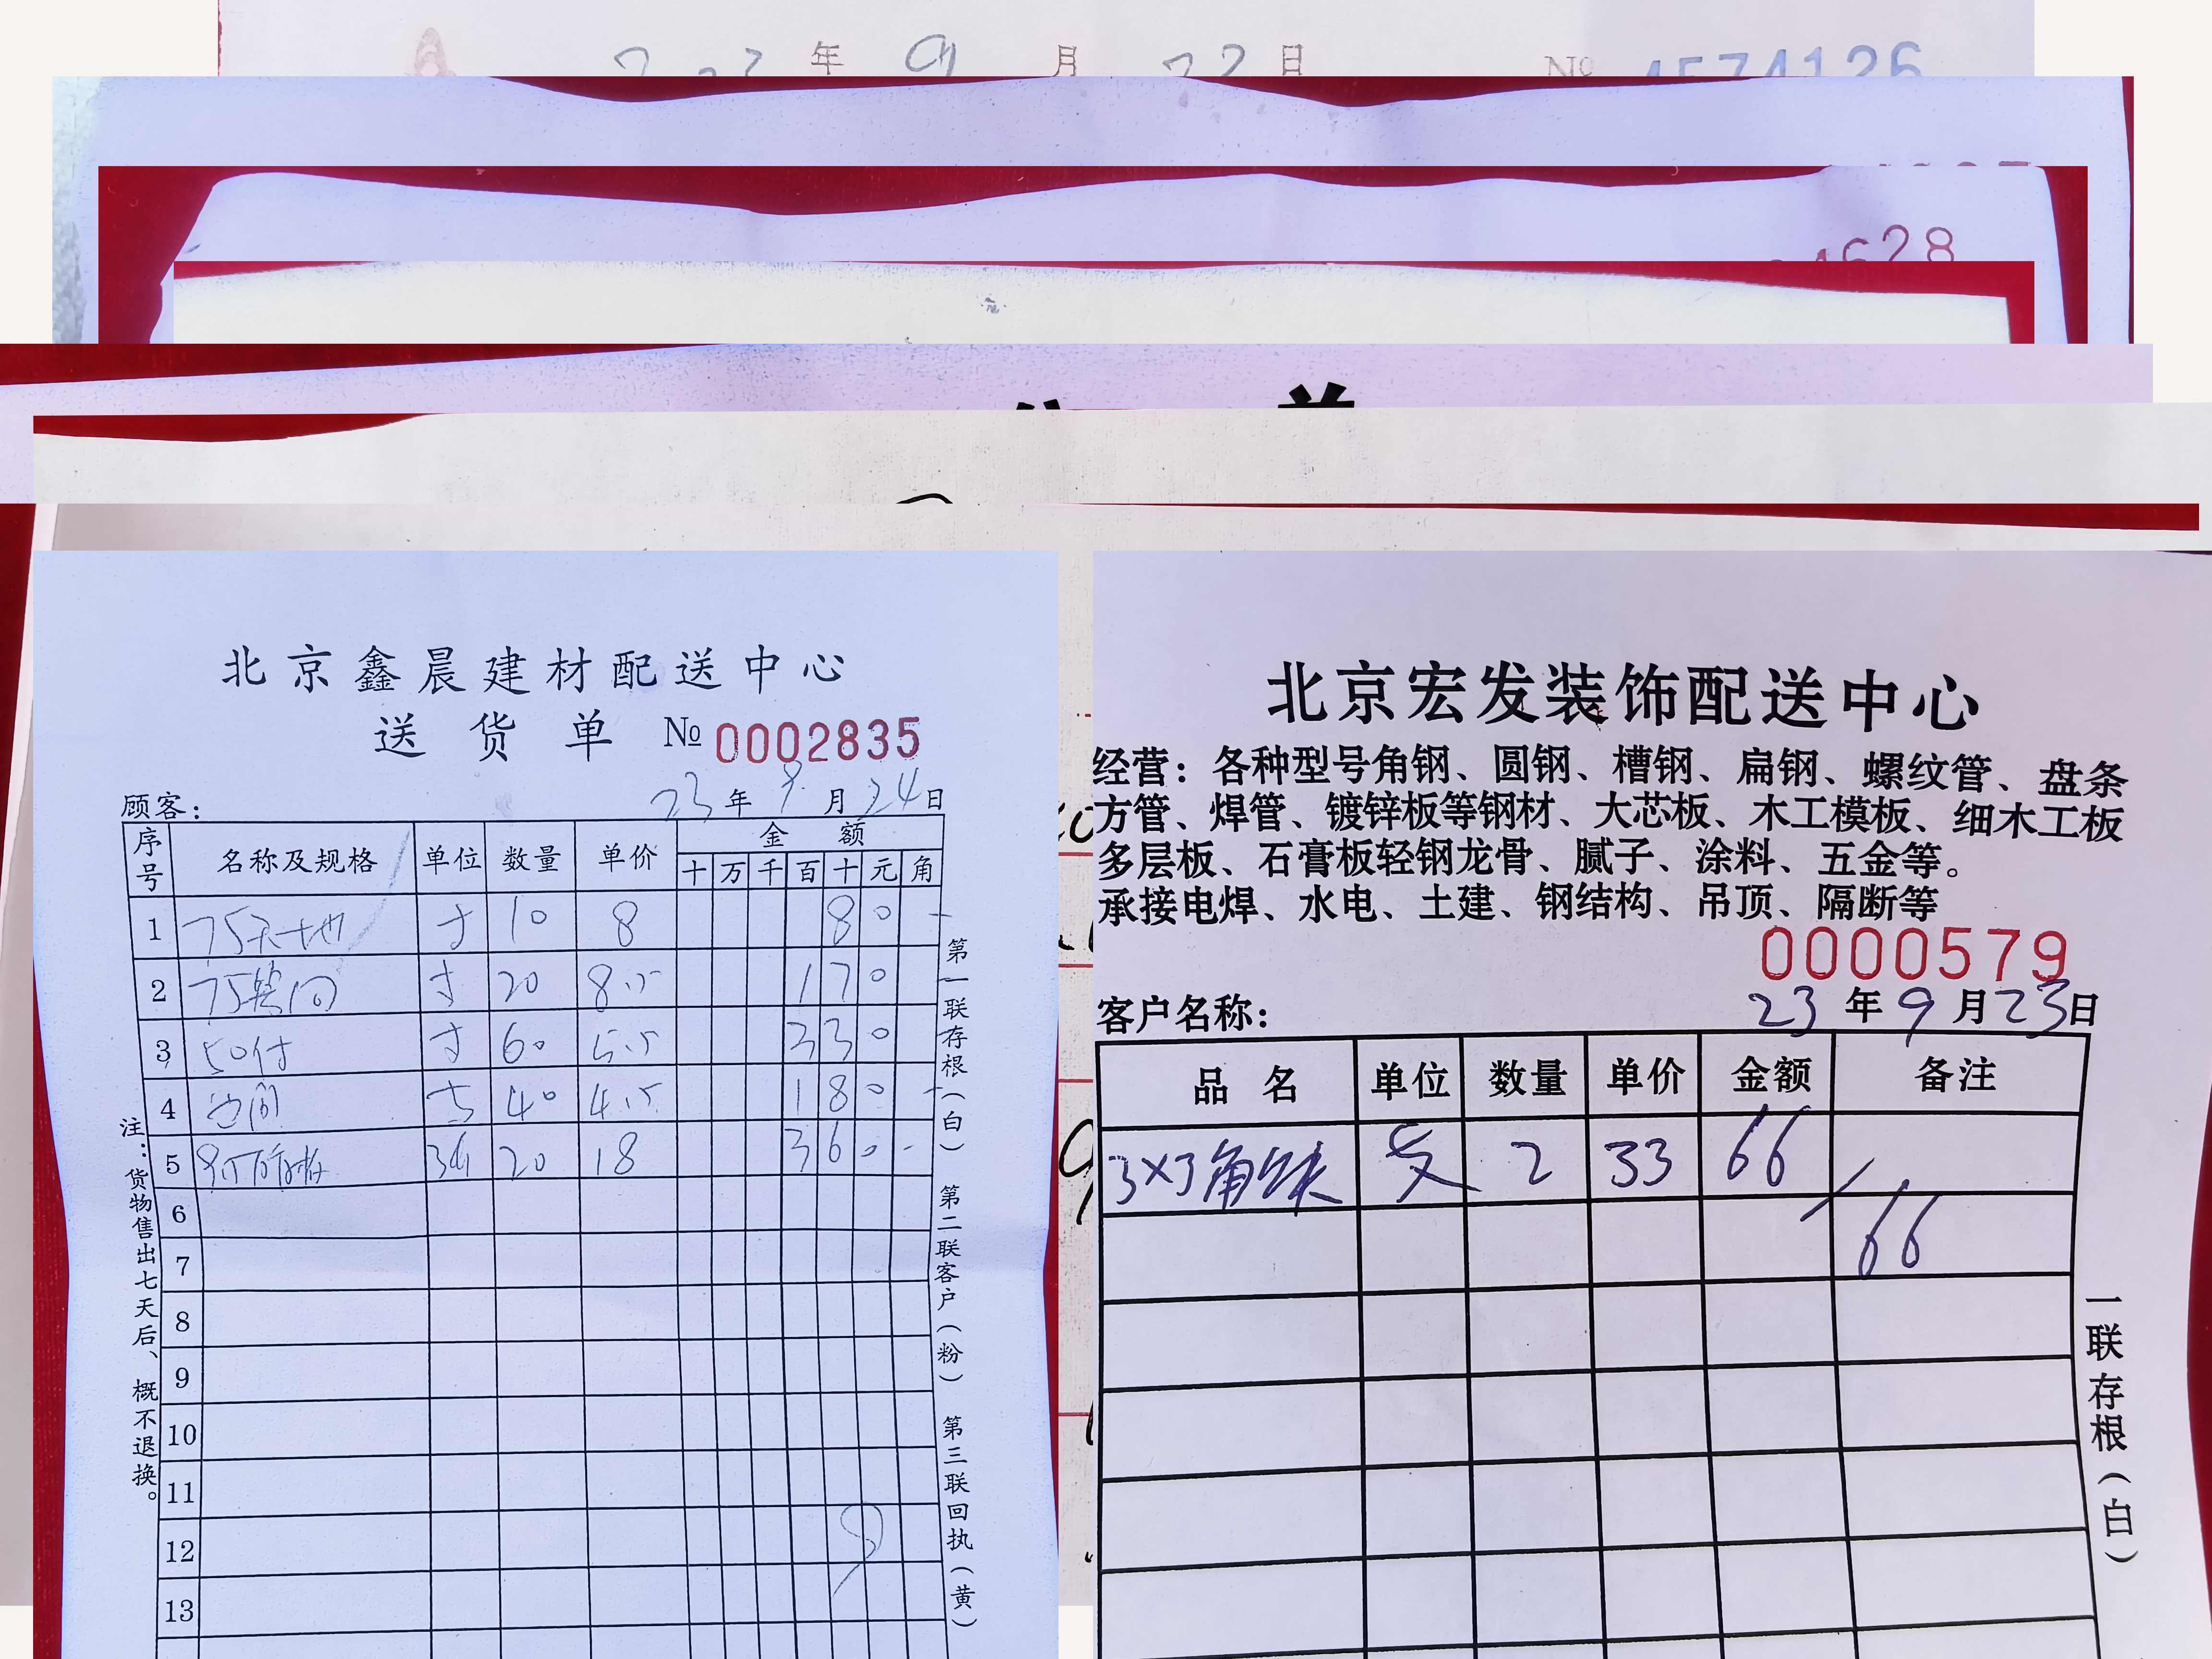 年 9 月 22 日 № 4574126
4628
北京鑫晨建材配送中心
送货单 № 0002835
顾客：
23 年 9 月 24 日
序号 名称及规格 单位 数量 单价 金额
十 万 千 百 十 元 角
1 75天地 寸 10 8 8 0
2 75竖间 寸 20 8.5 1 7 0
3 50付 寸 60 5.5 3 3 0
4 边间 40 4.5 1 8 0
5 20 18 3 6 0
6
7
8
9
10
11
12
13
注：货物售出七天后、概不退换。
第一联存根（白） 第二联客户（粉） 第三联回执（黄）
北京宏发装饰配送中心
经营：各种型号角钢、圆钢、槽钢、扁钢、螺纹管、盘条
方管、焊管、镀锌板等钢材、大芯板、木工模板、细木工板
多层板、石膏板轻钢龙骨、腻子、涂料、五金等。
承接电焊、水电、土建、钢结构、吊顶、隔断等
0000579
客户名称：
23 年 9 月 23 日
品名 单位 数量 单价 金额 备注
3×3角铁 支 2 33 66
66
一联存根（白）